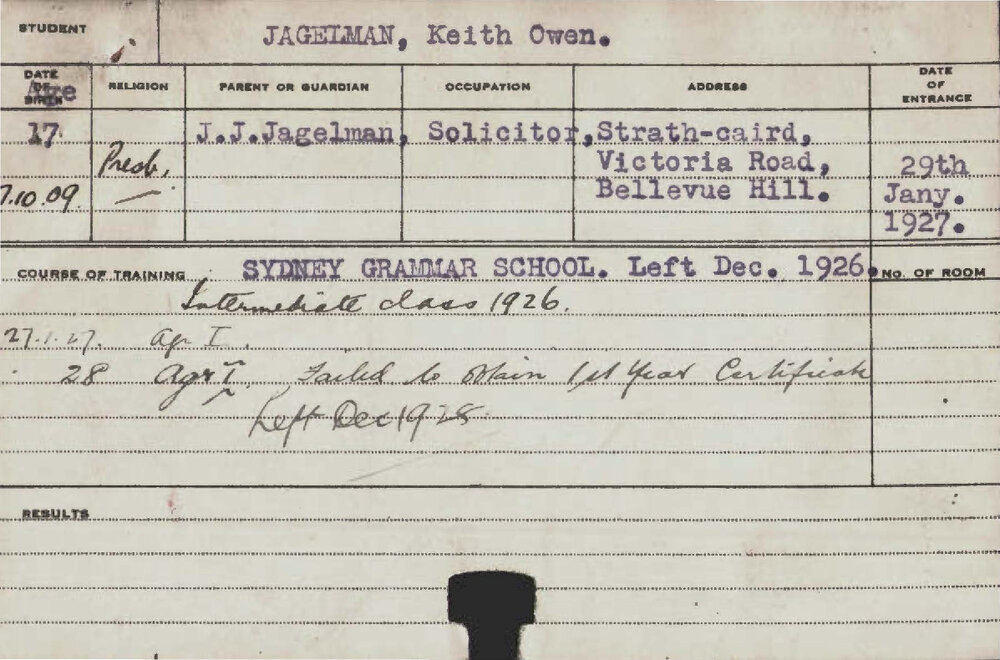 STUDENT
JAGELMAN, Keith Owen.
DATE OF BIRTH Age
RELIGION
PARENT OR GUARDIAN
OCCUPATION
ADDRESS
DATE OF ENTRANCE
17.
J.J.Jagelman, Solicitor, Strath-caird,
Presb.
Victoria Road,
29th
7.10.09.
Bellevue Hill.
Jany.
1927.
COURSE OF TRAINING SYDNEY GRAMMAR SCHOOL. Left Dec. 1926. NO. OF ROOM
Intermediate class 1926.
27.1.27. Agr I.
28 Agr I. Failed to obtain 1st Year Certificate
Left Dec 1928
RESULTS